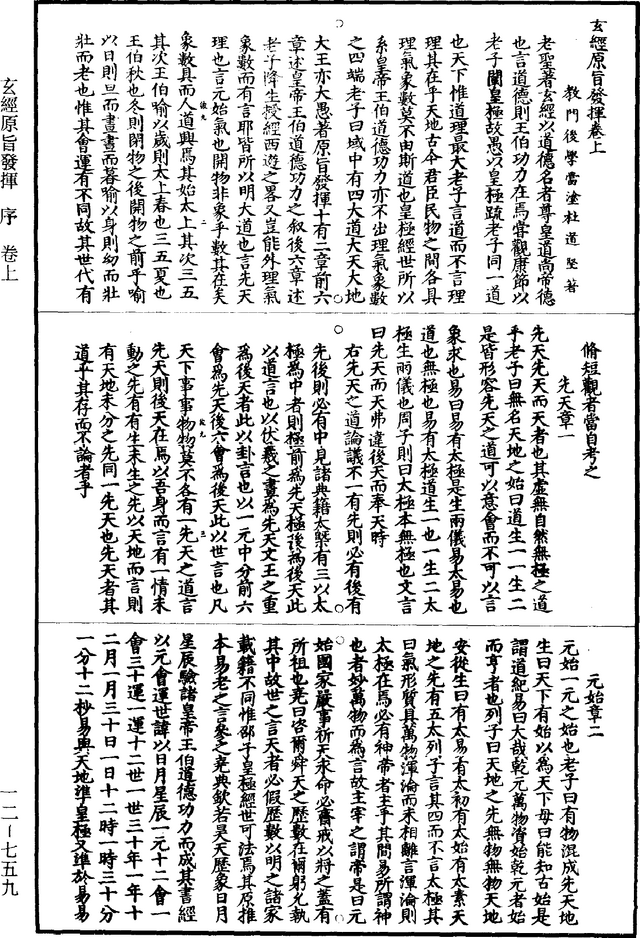 玄經原旨發揮卷上
教門後學當塗杜道堅著
老聖著玄經以道德名者尊皇道尚帝德
也言道德則王伯功力在焉嘗觀康節以
老子闡皇極故愚以皇極疏老子同一道
也天下惟道理最大老子言道而不言理
理其在乎天地古今君臣民物之間各具
理氣象數莫不由斯道也皇極經世所以
系皇帝王伯道德功力亦不出理氣象數
之四端老子曰域中有四大道大天大地
大王亦大愚著原旨發揮十有二章前六
章述皇帝王伯道德功力之叙後六章述
老子降生授經西遊之畧又豈能外理氣
象數而有言耶皆所以明大道也言先天
理也言元始氣也開物非象乎數其在矣
象數具而人道興焉其始太上其次三五
其次王伯喻以歲則太上春也三五夏也
王伯秋也冬則閉物之後開物之前乎喻
以日則旦而晝晝而暮喻以身則幼而壯
壯而老也惟其會運有不同故其世代有
脩短觀者當自考之
先天章一
先天先天而天者也其虛無自然無極之道
乎老子曰無名天地之始曰道生一一生二
是皆形容先天之道可以意會而不可以言
象求也易曰易有太極是生兩儀易太易也
道也無極也易有太極道生一也一生二太
極生兩儀也周子則曰太極本無極也文言
曰先天而天弗違後天而奉天時
右先天之道論議不一有先則必有後有
先後則必有中見諸典籍太槩有三以太
極為中者則極前為先天極後為後天此
以道言也以伏羲之畫為先天文王之重
為後天者此以卦言也以一元中分前六
會為先天後六會為後天此以世言也凡
天下事事物物莫不各有一先天之道言
先天則後天在焉以吾身而言有一情未
動之先有有生未生之先以天地而言則
有天地未分之先同一先天也先天者其
道乎其存而不論者乎
元始章二
元始一元之始也老子曰有物混成先天地
生曰天下有始以為天下母曰能知古始是
謂道紀易曰大哉乾元萬物資始乾元者始
而亨者也列子曰天地之先無物無物天地
安從生曰有太易有太初有太始有太素天
地之先有五太列子言其四而不言太極其
曰氣形質具萬物渾淪而未相離言渾淪則
太極在焉必有神帝者主乎其間易所謂神
也者妙萬物而為言故主宰之謂帝是曰元
始國家嚴事祈天求命必齋戒以將之蓋有
所祖也堯曰咨爾舜天之曆數在爾躬允執
其中故世之言天者必假曆數以明之諸家
載籍不同惟邵子皇極經世可法焉其原推
本易老之言參之堯典欽若昊天曆象日月
星辰驗諸皇帝王伯道德功力而成其書經
以元會運世諱以日月星辰一元十二會一
會三十運一運十二世一世三十年一年十
二月一月三十日一日十二時一時三十分
一分十二秒易與天地準皇極又準於易易
玄經原旨發揮 序 卷上
一二—七五九